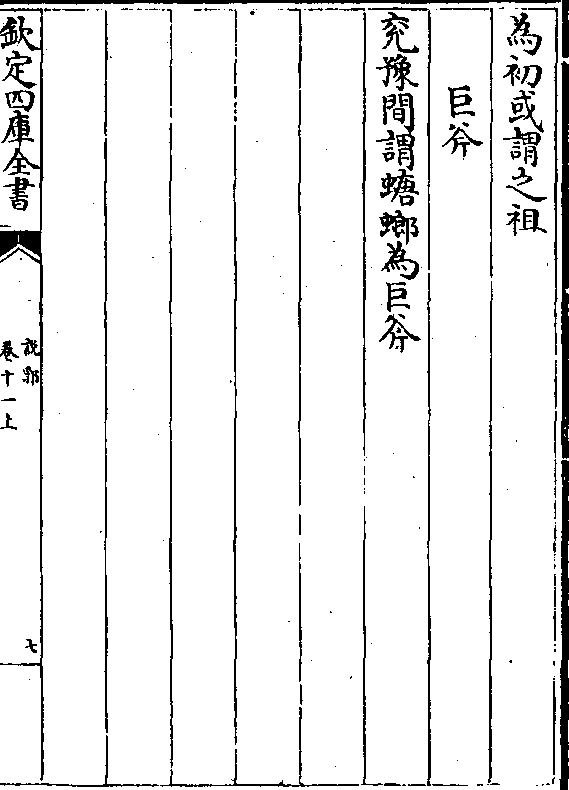 為初或謂之祖
巨斧
兖豫間謂螗蜋為巨斧
欽定四庫全書
説郛
卷十一上
七